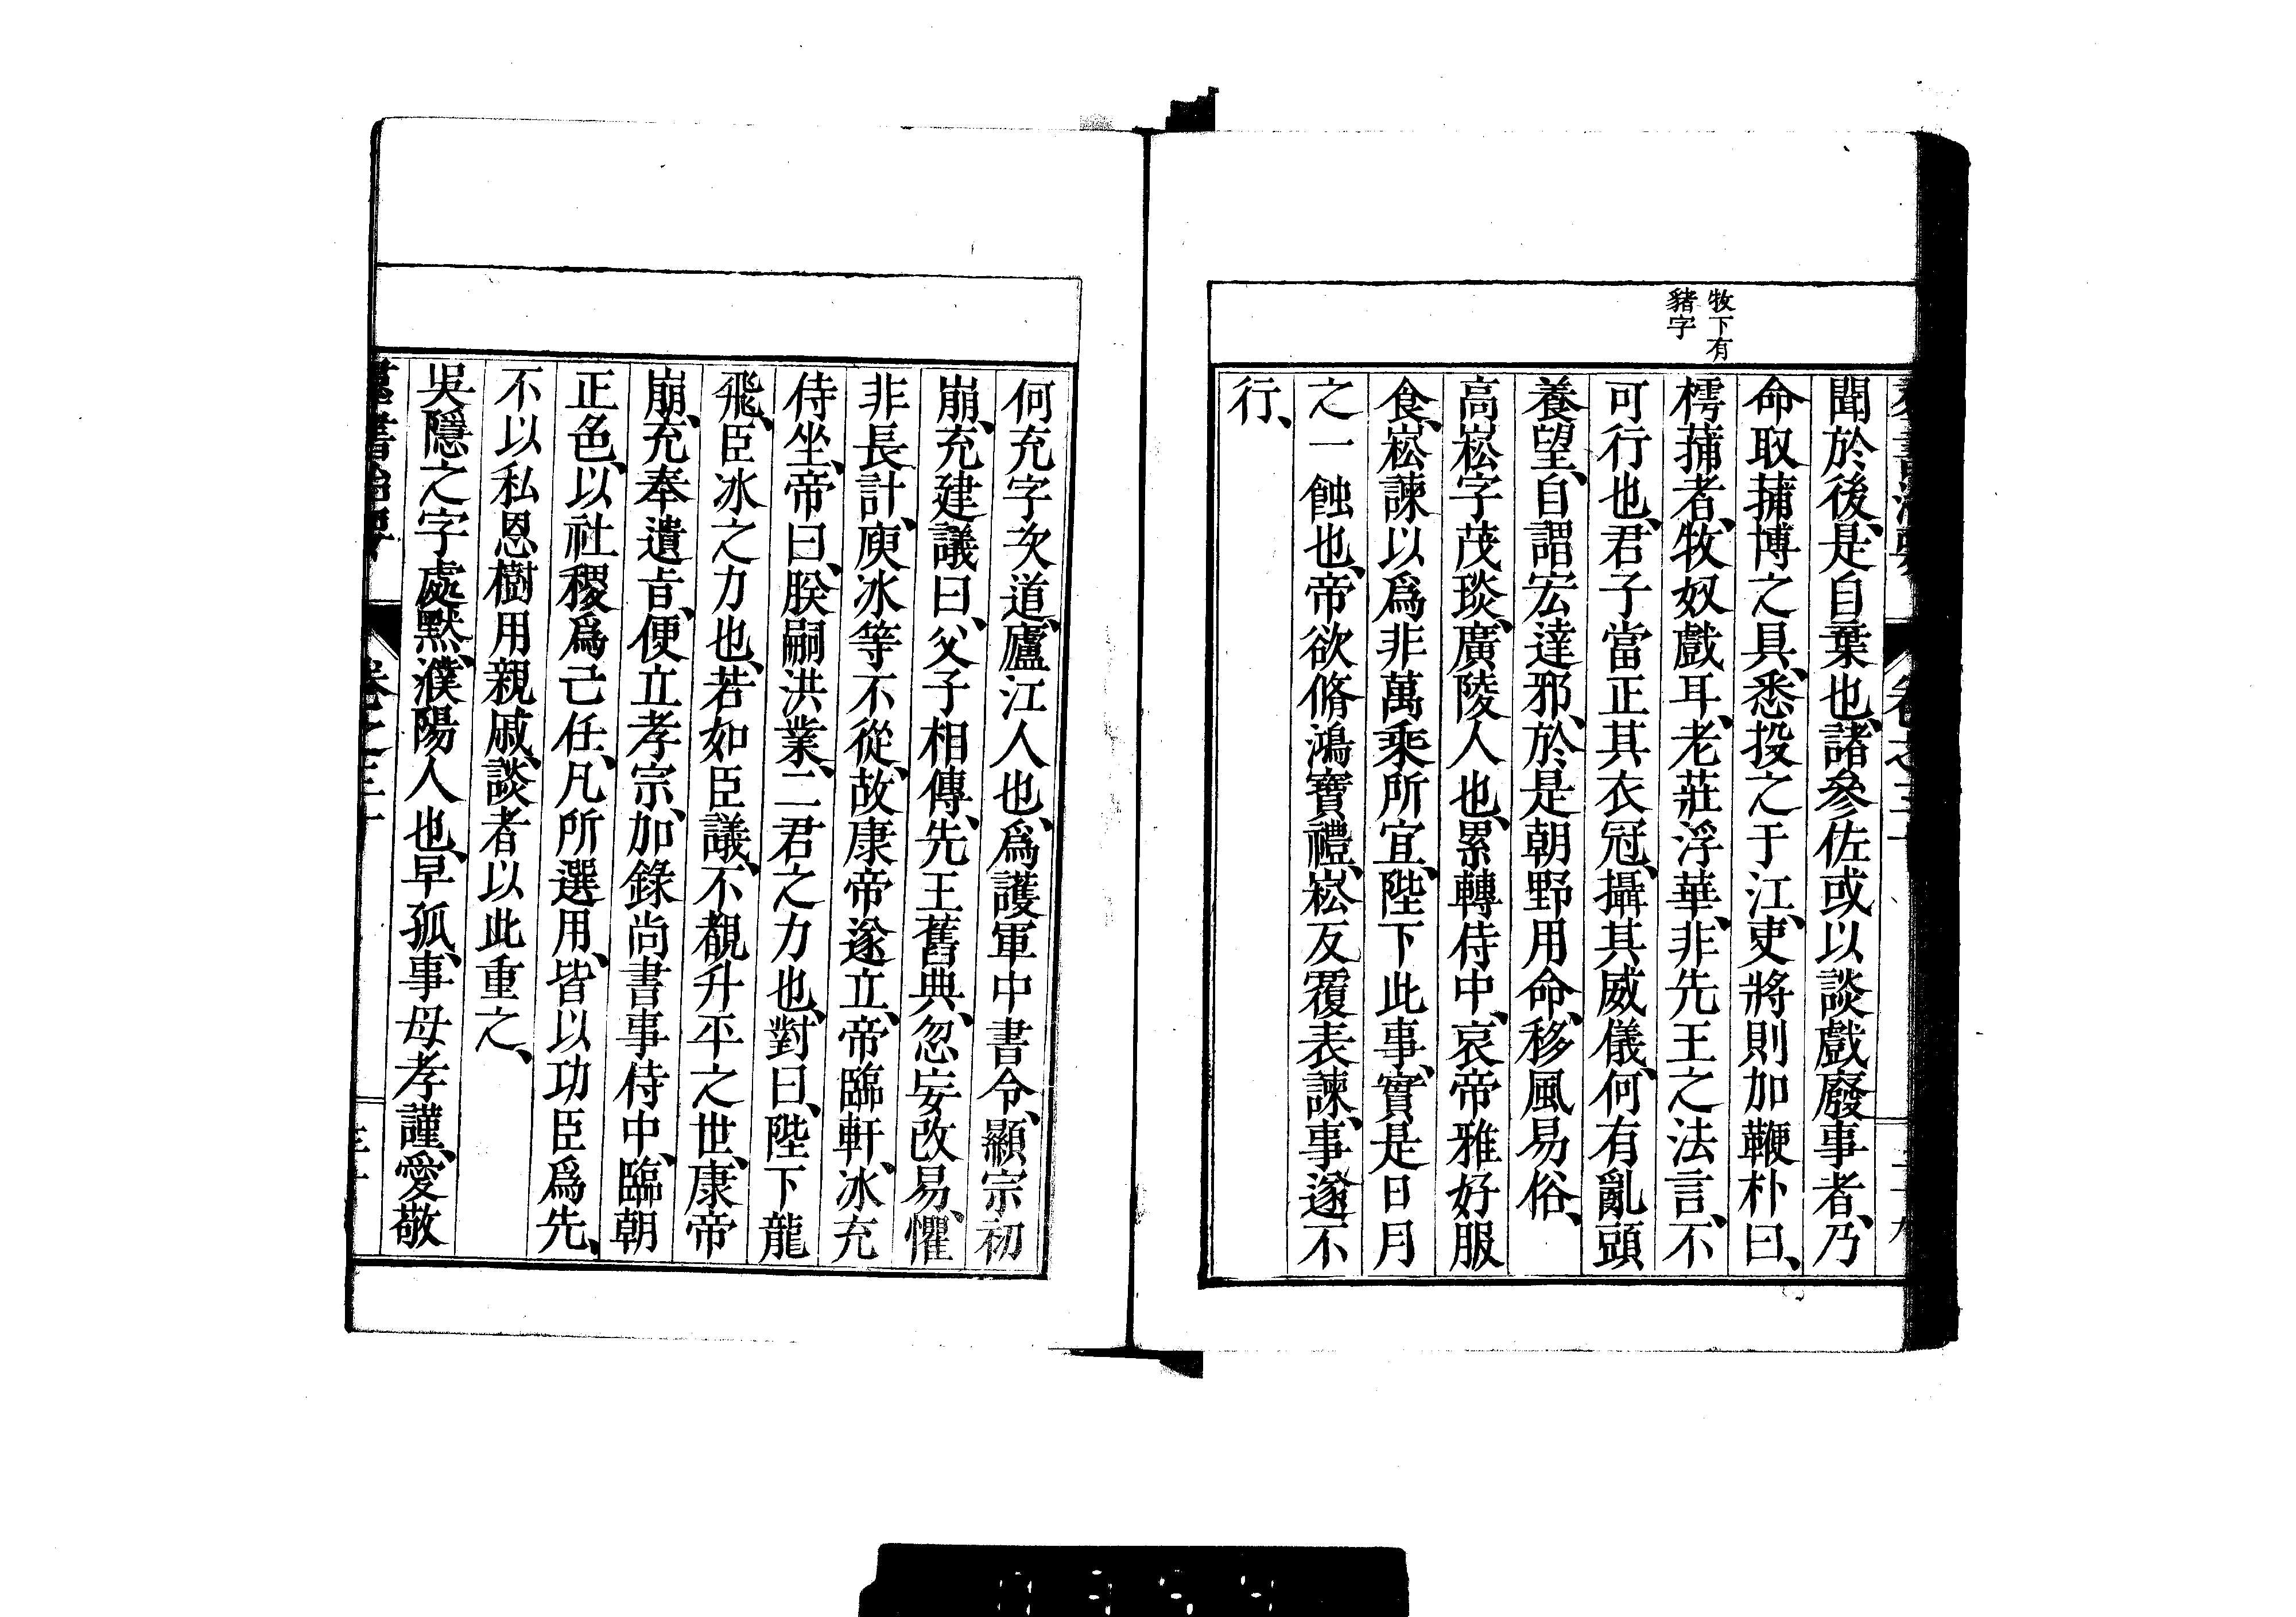 牧下有
豬字
聞於後、是自棄也、諸參佐或以談戲廢事者、乃
命取蒱博之具、悉投之于江、吏將則加鞭朴曰、
樗蒱者、牧奴戲耳、老莊浮華、非先王之法言、不
可行也、君子當正其衣冠、攝其威儀、何有亂頭
養望、自謂宏達邪、於是朝野用命、移風易俗、
高崧字茂琰、廣陵人也、累轉侍中、哀帝雅好服
食、崧諫以爲非萬乘所宜、陛下此事、實是日月
之一蝕也、帝欲脩鴻寶禮、崧反覆表諫、事遂不
行、
何充字次道、廬江人也、爲護軍中書令、顯宗初
崩、充建議曰、父子相傳、先王舊典、忽妄改易、懼
非長計、庾冰等不從、故康帝遂立、帝臨軒、冰充
侍坐、帝曰、朕嗣洪業、二君之力也、對曰、陛下龍
飛、臣冰之力也、若如臣議、不覩升平之世、康帝
崩、充奉遺旨、便立孝宗、加錄尚書事侍中、臨朝
正色、以社稷爲己任、凡所選用、皆以功臣爲先、
不以私恩樹用親戚、談者以此重之、
吳隱之字處默、濮陽人也、早孤、事母孝謹、愛敬